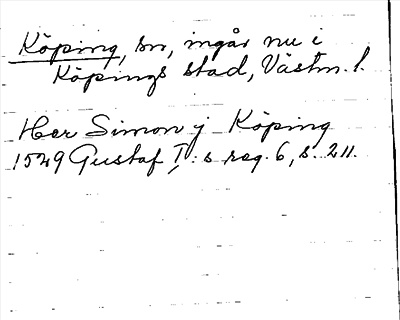 Köping, sn, ingår nu i
Köpings stad, Västm. l.
Her Simon j Köping
1529 Gustaf I:s reg. 6, s. 211.